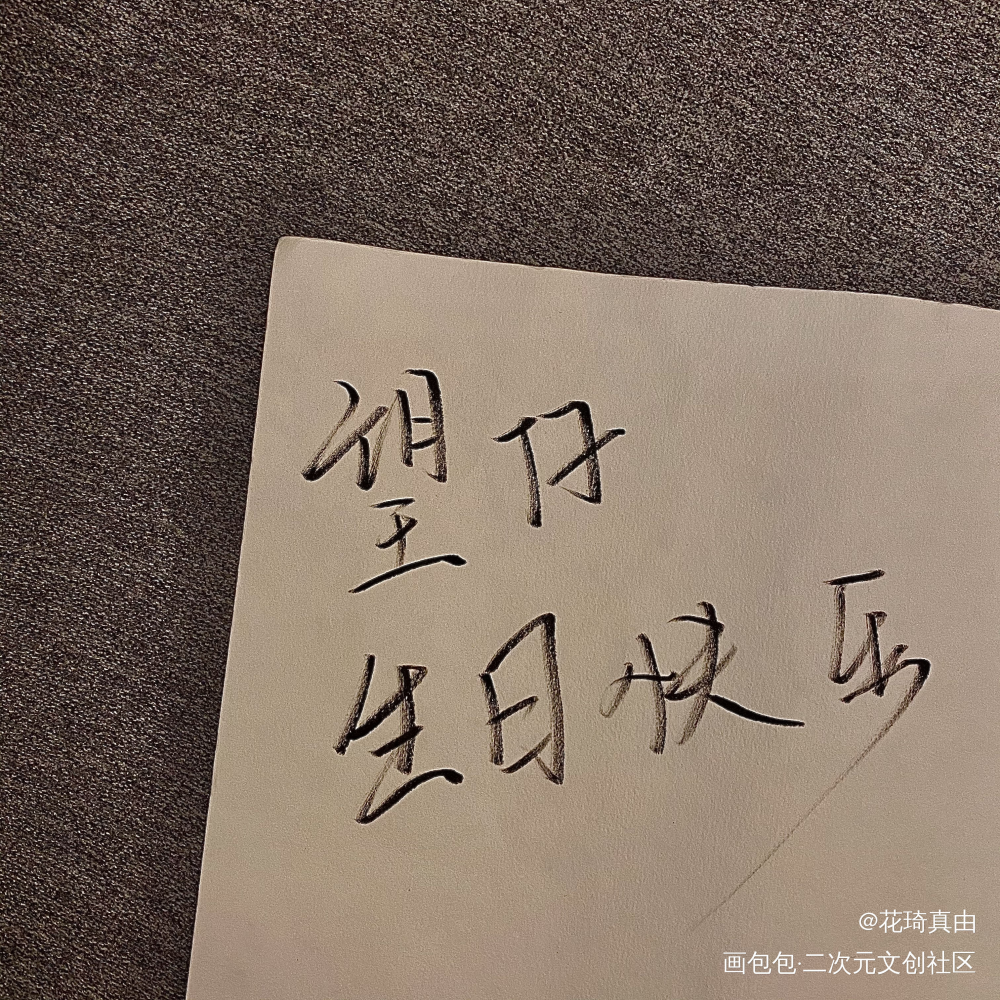 望仔
生日快乐
@花琦真由
画包包·二次元文创社区